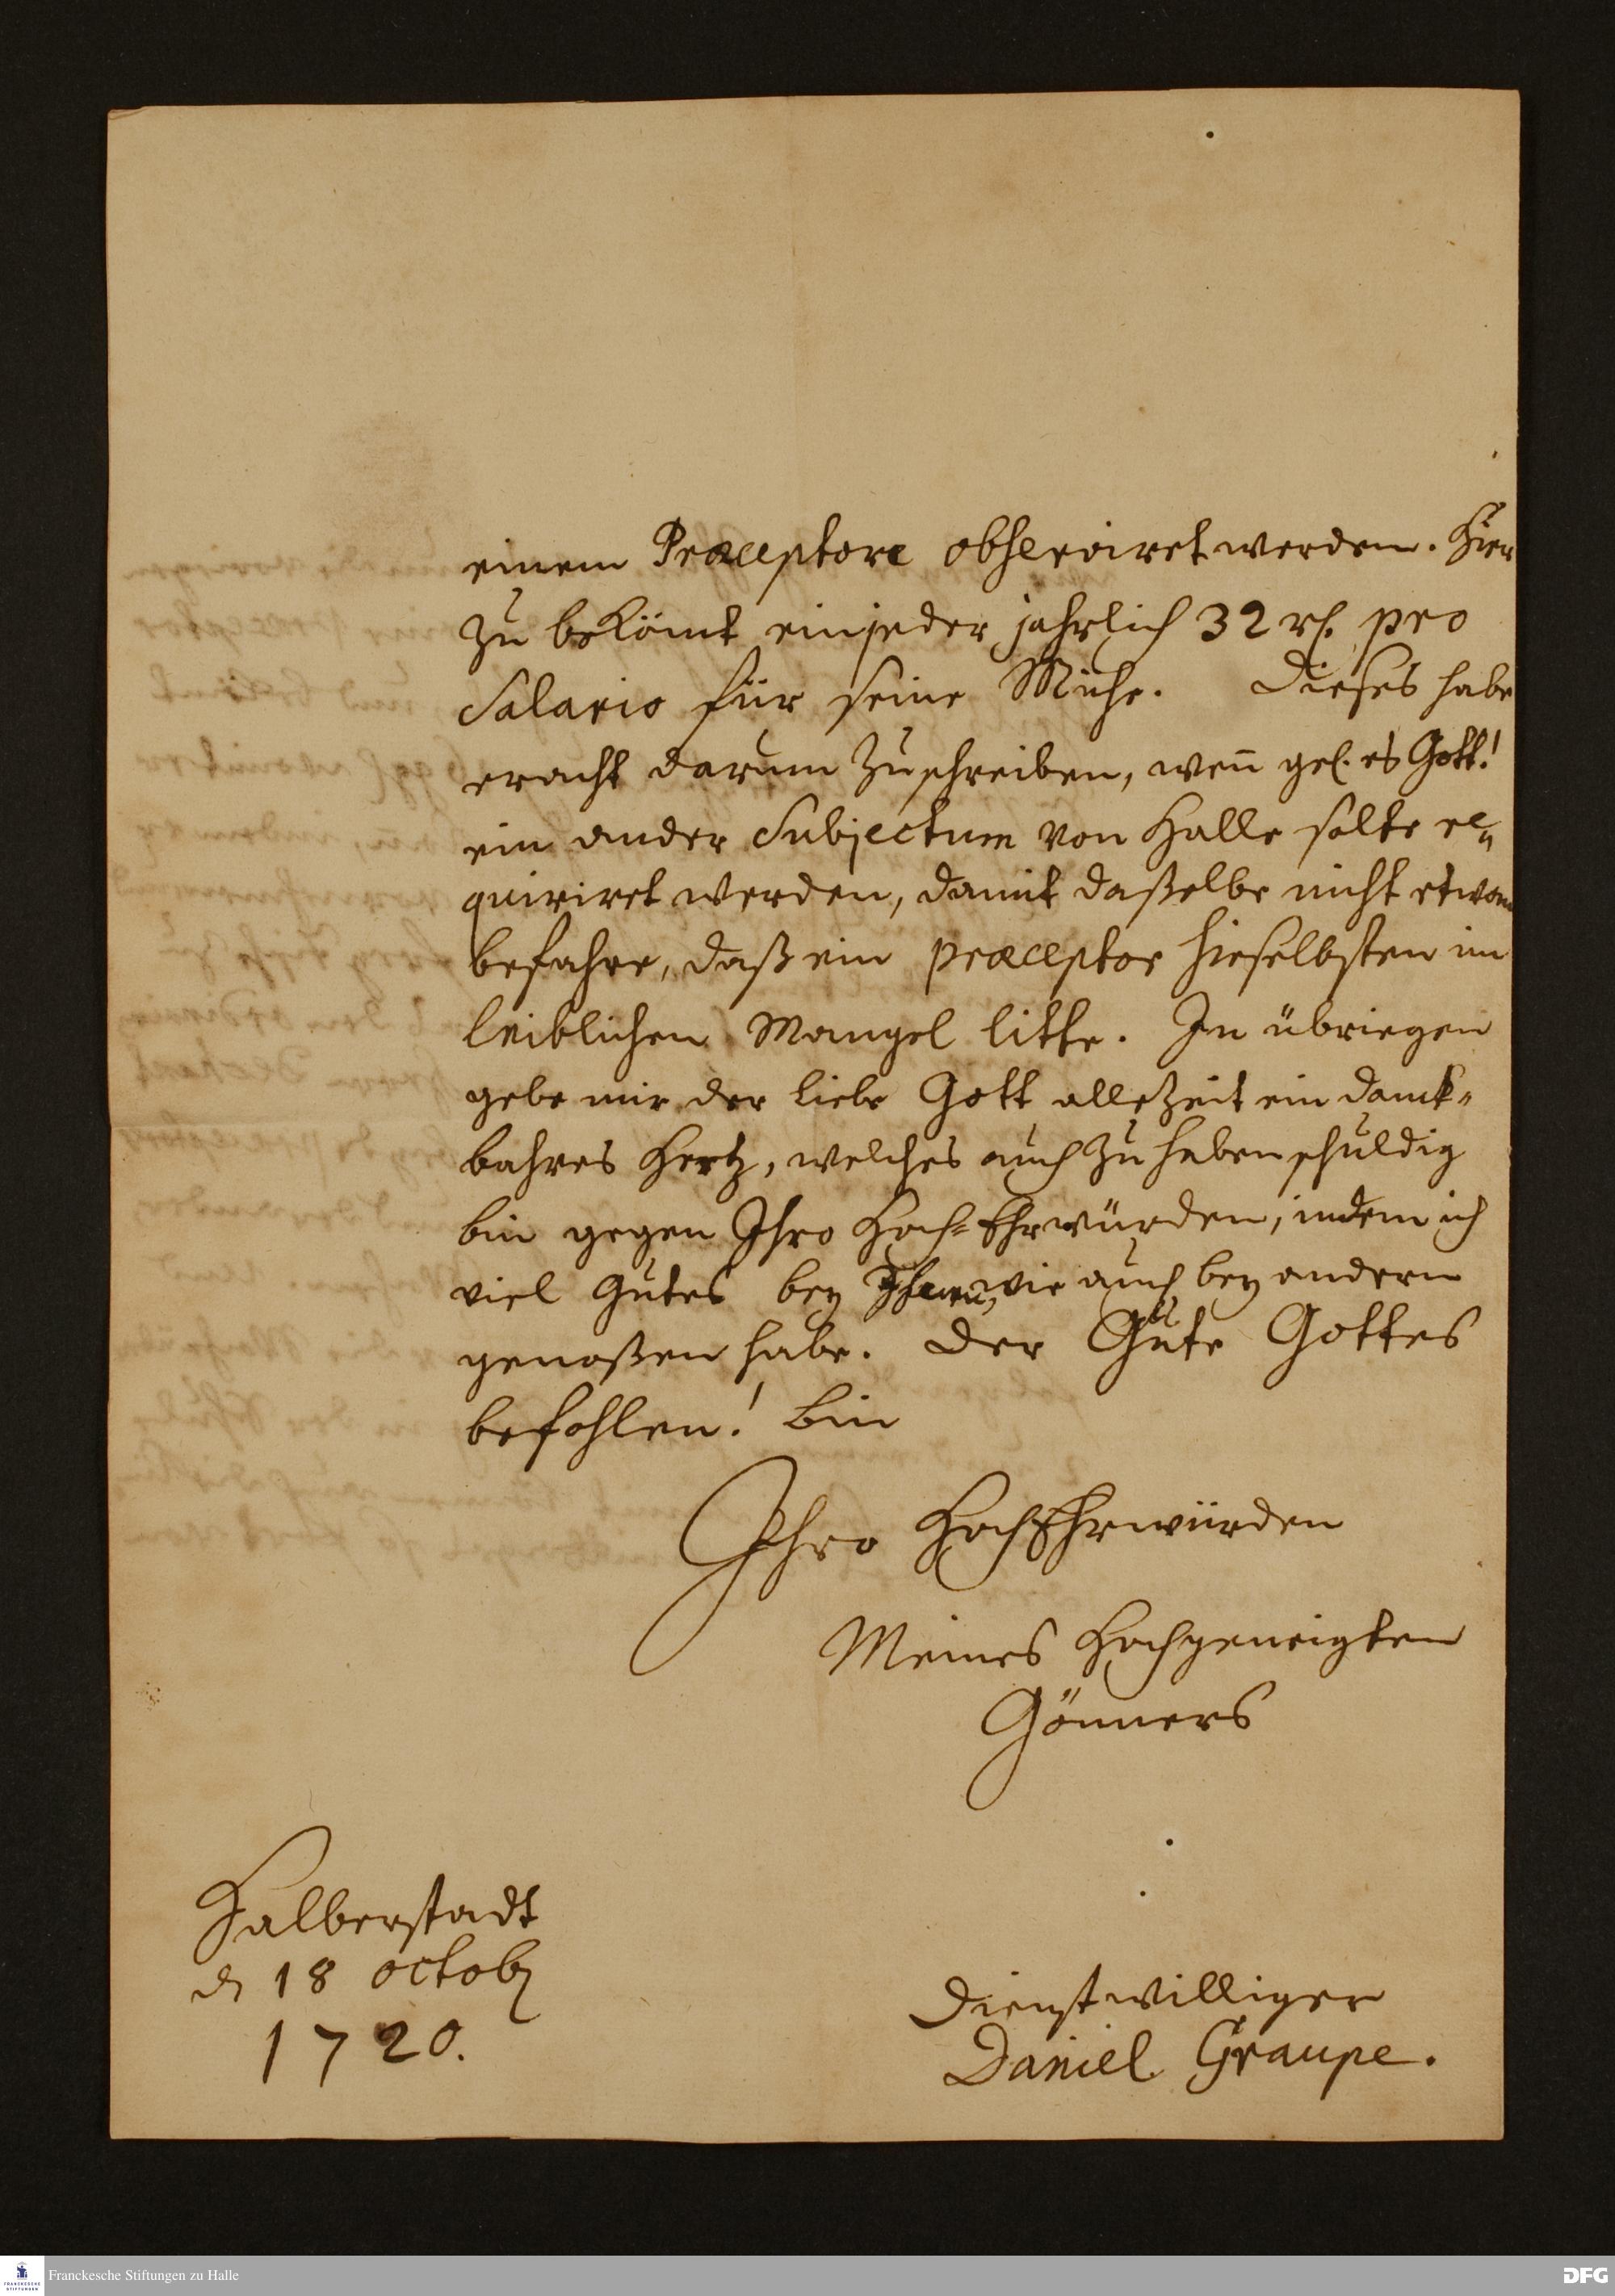 einem Præceptore observiret werden. Hier
zu bekömt ein jeder jahrlich 32 rh. pro
Salario für seine Mühe. Dieses habe
eracht darum zu schreiben, weñ gel. es Gott!
ein ander Subjectum von Halle solte re„
quiriret werden, damit daßelbe nicht etwan
befahre, daß ein præceptor hieselbsten im
leiblichen Mangel litte. Im übriegen
gebe mir der liebe Gott allezeit ein danck„
bahres Hertz, welches auch zu haben schuldig
bin gegen Ihro Hoch-Ehrwürden, indem ich
viel Gutes bey Ihnen, wie auch bey andern
genoßen habe. Der Güte Gottes
befohlen! bin
Ihro HochEhrwürden
Meines Hochgeneigten
Gönners
Halberstadt
d 18 octobr
1720.
Dienstwilliger
Daniel Graupe.
FRANCKESCHE STIFTUNGEN
Franckesche Stiftungen zu Halle
DFG